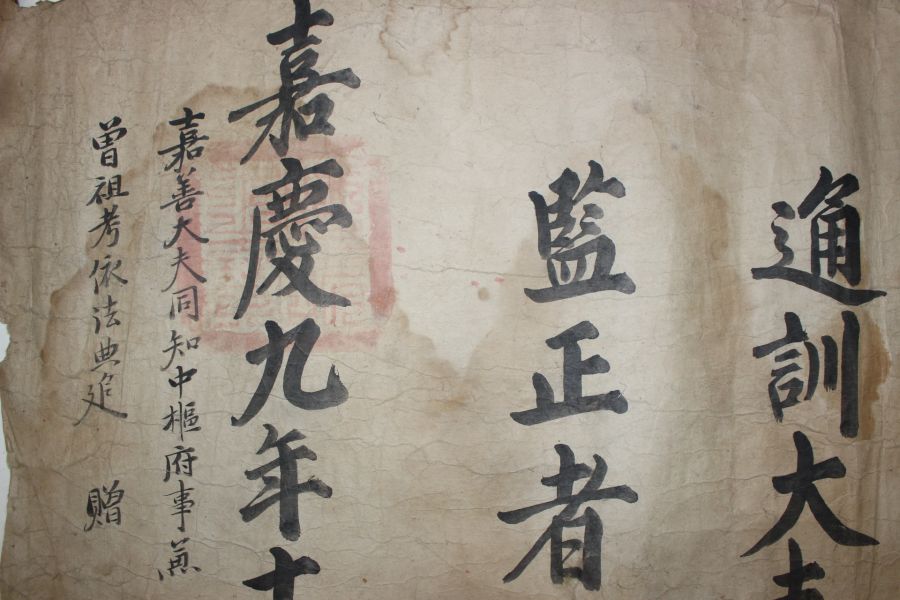 通訓大夫
監正者
嘉慶九年十
嘉善大夫同知中樞府事兼
曽祖考依法典追 贈